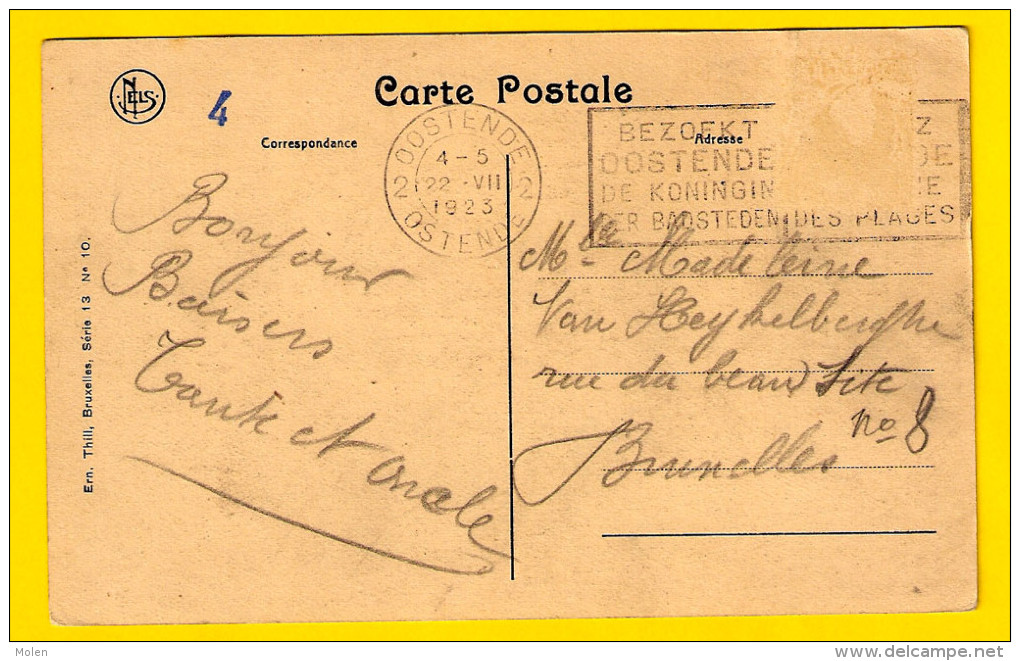 NELS
4
Carte Postale
Correspondance
Adresse
OOSTENDE
4-5
2 22 VII 2
1923
OSTENDE
BEZOEKT
OOSTENDE DE
DE KONINGIN
DER BADSTEDEN DES PLAGES
Bonjour
Baisers
Tante et Oncle
Mlle Madeleine
Van Heykelberghe
rue du beau Site
no 8
Bruxelles
Ern. Thill, Bruxelles, Série 13 No 10.
Molen
delcampe.net